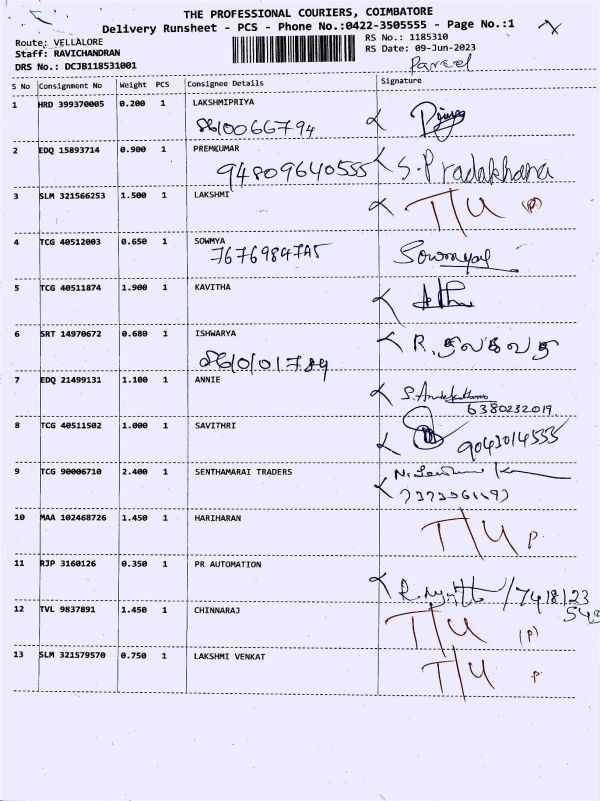 THE PROFESSIONAL COURIERS, COIMBATORE
Delivery Runsheet - PCS - Phone No.:0422-3505555 - Page No.:1
Route: VELLALORE
RS No.: 1185310
Staff: RAVICHANDRAN
RS Date: 09-Jun-2023
DRS No.: DCJB118531001
Parcel
S No Consignment No Weight PCS Consignee Details Signature
1 HRD 399370005 0.200 1 LAKSHMIPRIYA
8610066794
2 EDQ 15893714 0.900 1 PREMKUMAR
9480964055 S. Pradakhana
3 SLM 321566253 1.500 1 LAKSHMI T/U (P)
4 TCG 40512003 0.650 1 SOWMYA
7676984745 Sowmyal
5 TCG 40511874 1.900 1 KAVITHA
6 SRT 14970672 0.680 1 ISHWARYA
8610101789 R. திலகவதி
7 EDQ 21499131 1.100 1 ANNIE
6380232019
8 TCG 40511502 1.000 1 SAVITHRI
9043014555
9 TCG 90006710 2.400 1 SENTHAMARAI TRADERS
10 MAA 102468726 1.450 1 HARIHARAN T/U P.
11 RJP 3160126 0.350 1 PR AUTOMATION
12 TVL 9837891 1.450 1 CHINNARAJ T/U (P)
13 SLM 321579570 0.750 1 LAKSHMI VENKAT T/U P.